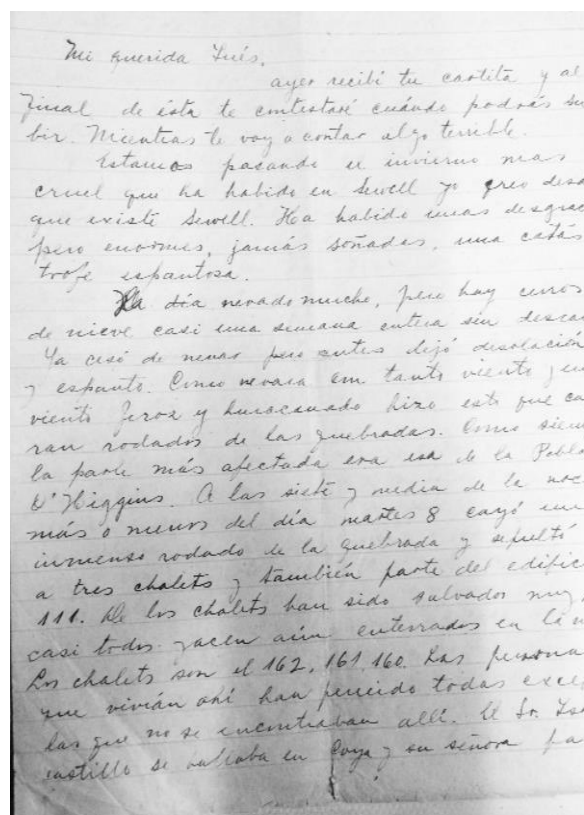 Mi querida Inés,
ayer recibí tu cartita y al
final de ésta te contestaré cuándo podrás su
bir. Mientras te voy a contar algo terrible.
Estamos pasando el invierno mas
cruel que ha habido en Sewell yo creo desd
que existe Sewell. Ha habido unas desgrac
pero enormes, jamás soñadas, una catás
trofe espantosa.
Ha día nevado mucho, pero hay cerros
de nieve casi una semana entera sin desca
Ya cesó de nevar pero antes dejó desolación
y espanto. Como nevara con tanto viento, un
viento feroz y huracanado hizo esto que ca
ran rodados de las quebradas. Como siem
la parte más afectada era esa de la Pobla
O'Higgins. A las siete y media de la noc
más o menos del día martes 8 cayó un
inmenso rodado de la quebrada y sepultó
a tres chalets y también parte del edific
111. De los chalets han sido salvados muy
casi todos yacen aún enterrados en la n
Los chalets son el 162, 161, 160. Las persona
que vivían ahí han perecido todas exce
las que no se encontraban allí. El Sr.
Castillo se hallaba en Coya y su señora pa